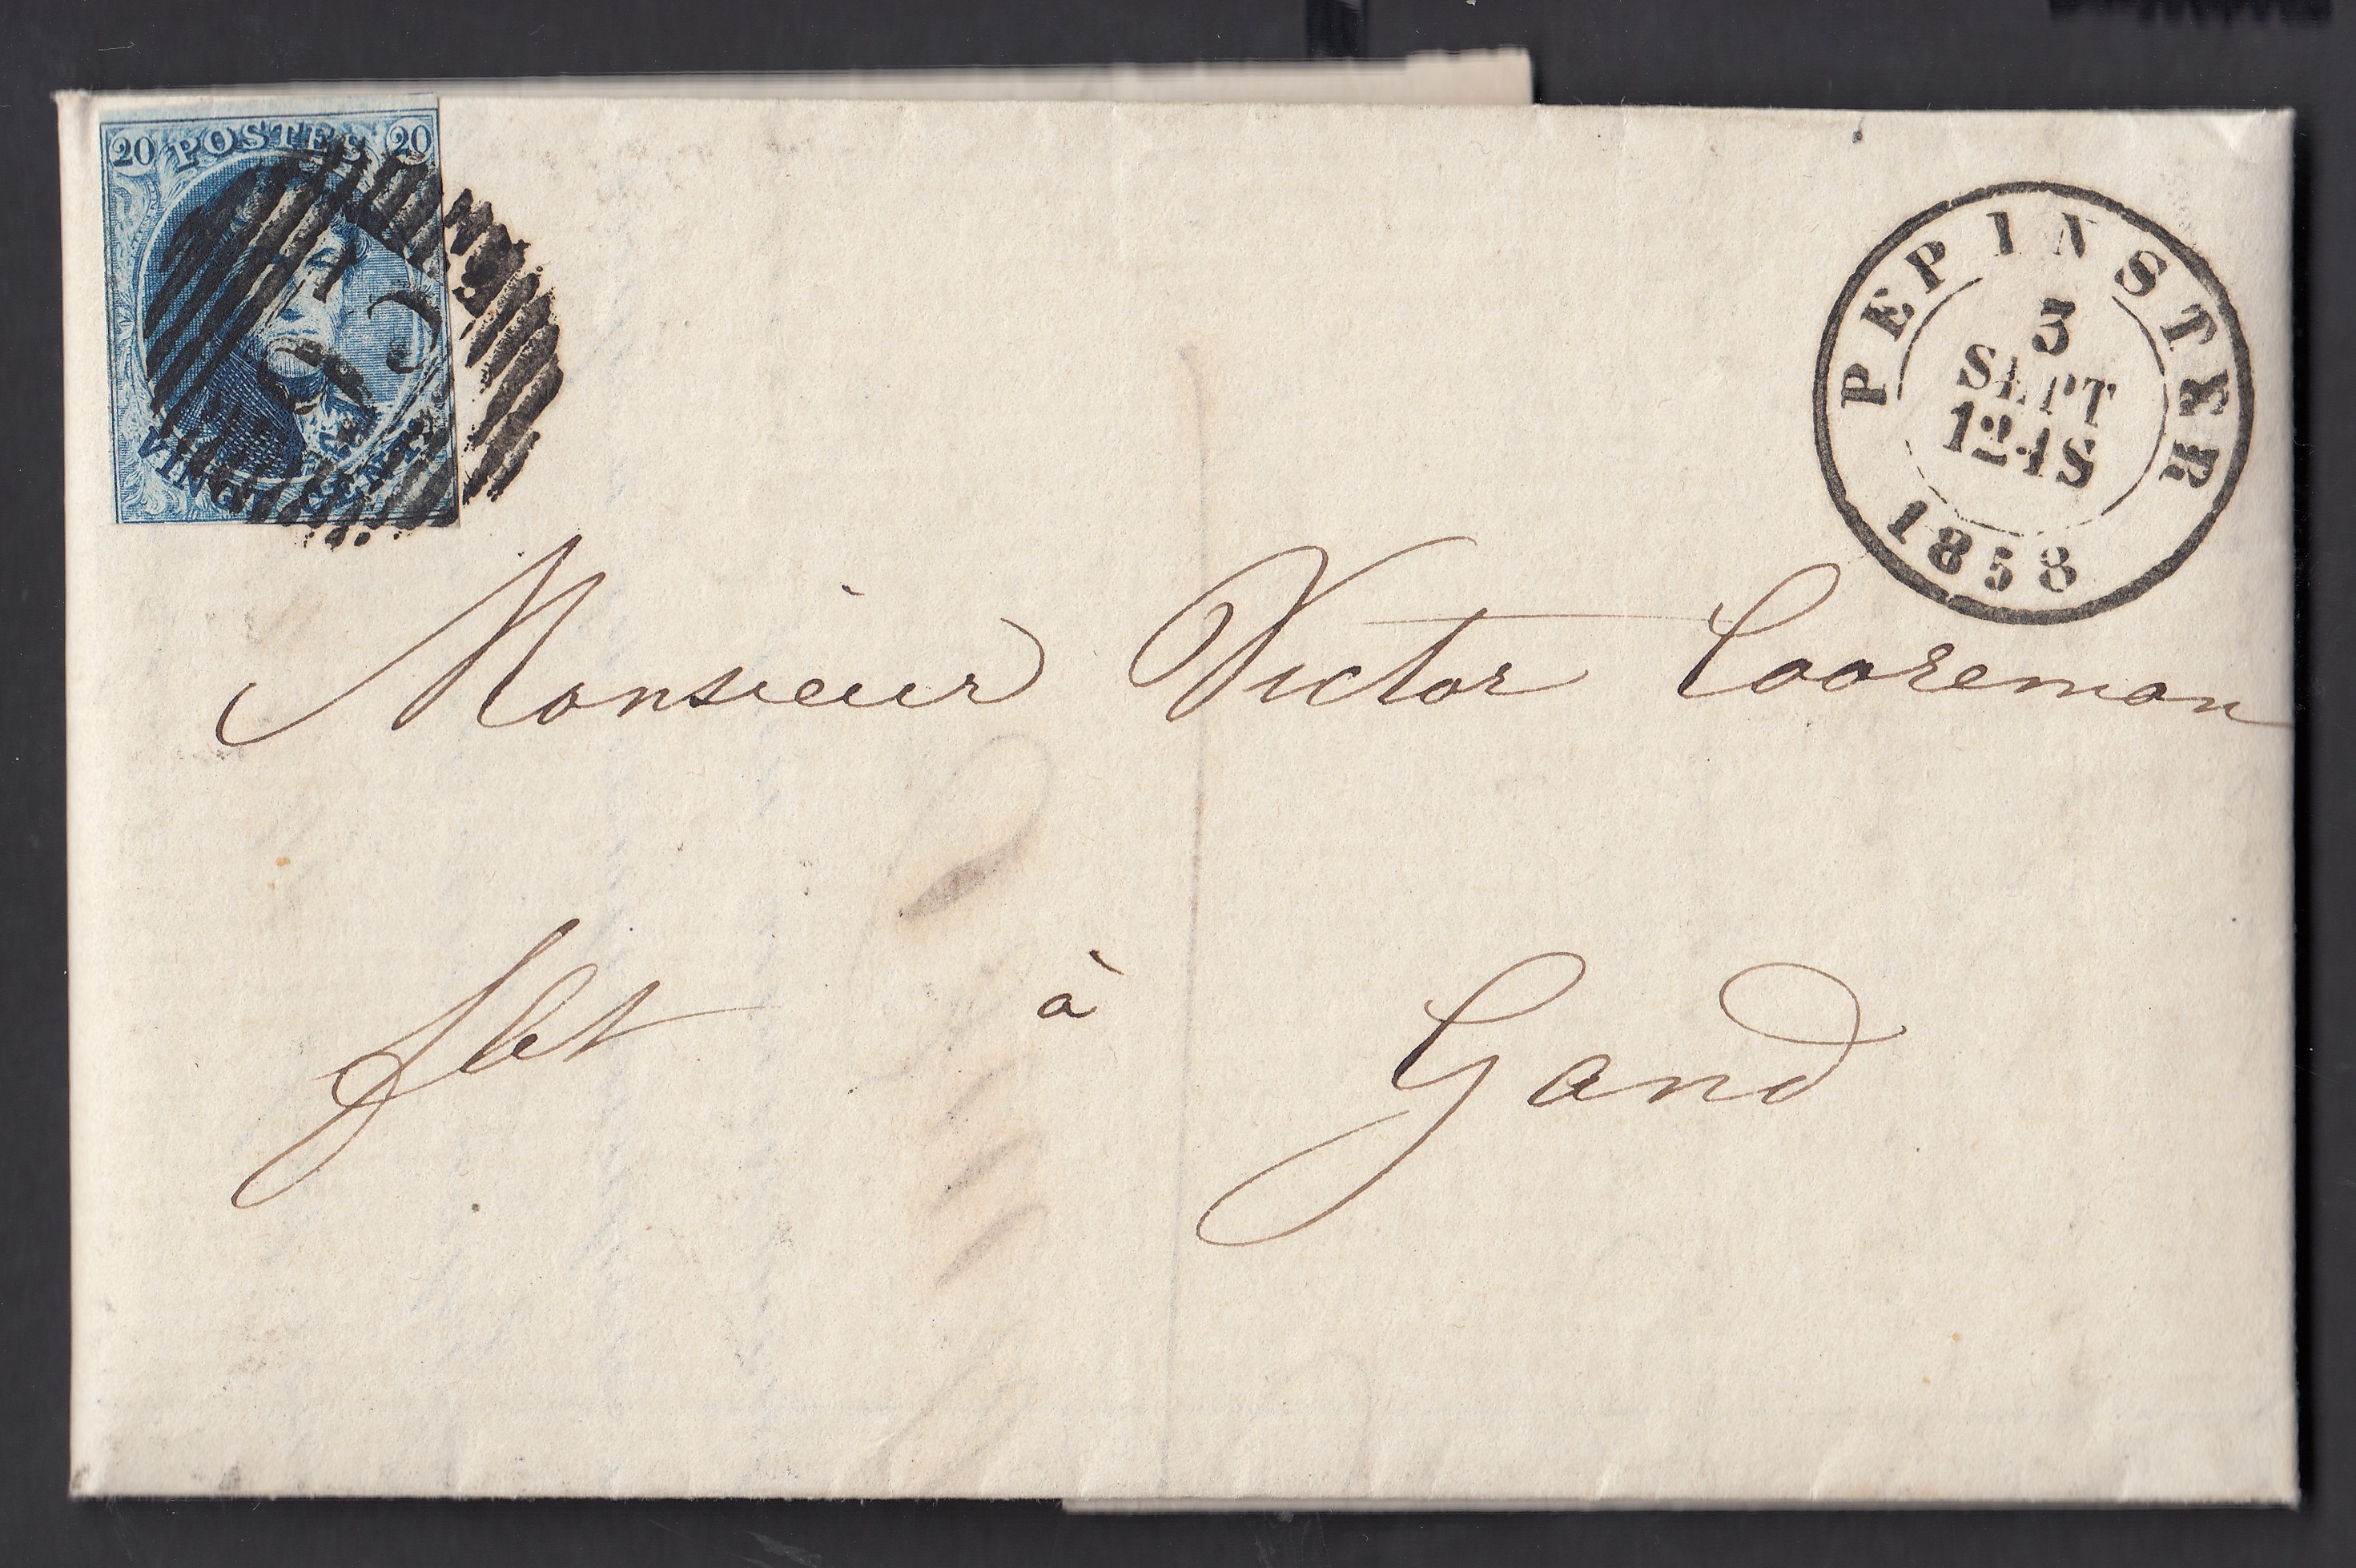 20 POSTES 20
VINGT CENTS
PEPINSTER
3
SEPT
12-1S
1858
Monsieur Victor Cooreman
à Gand